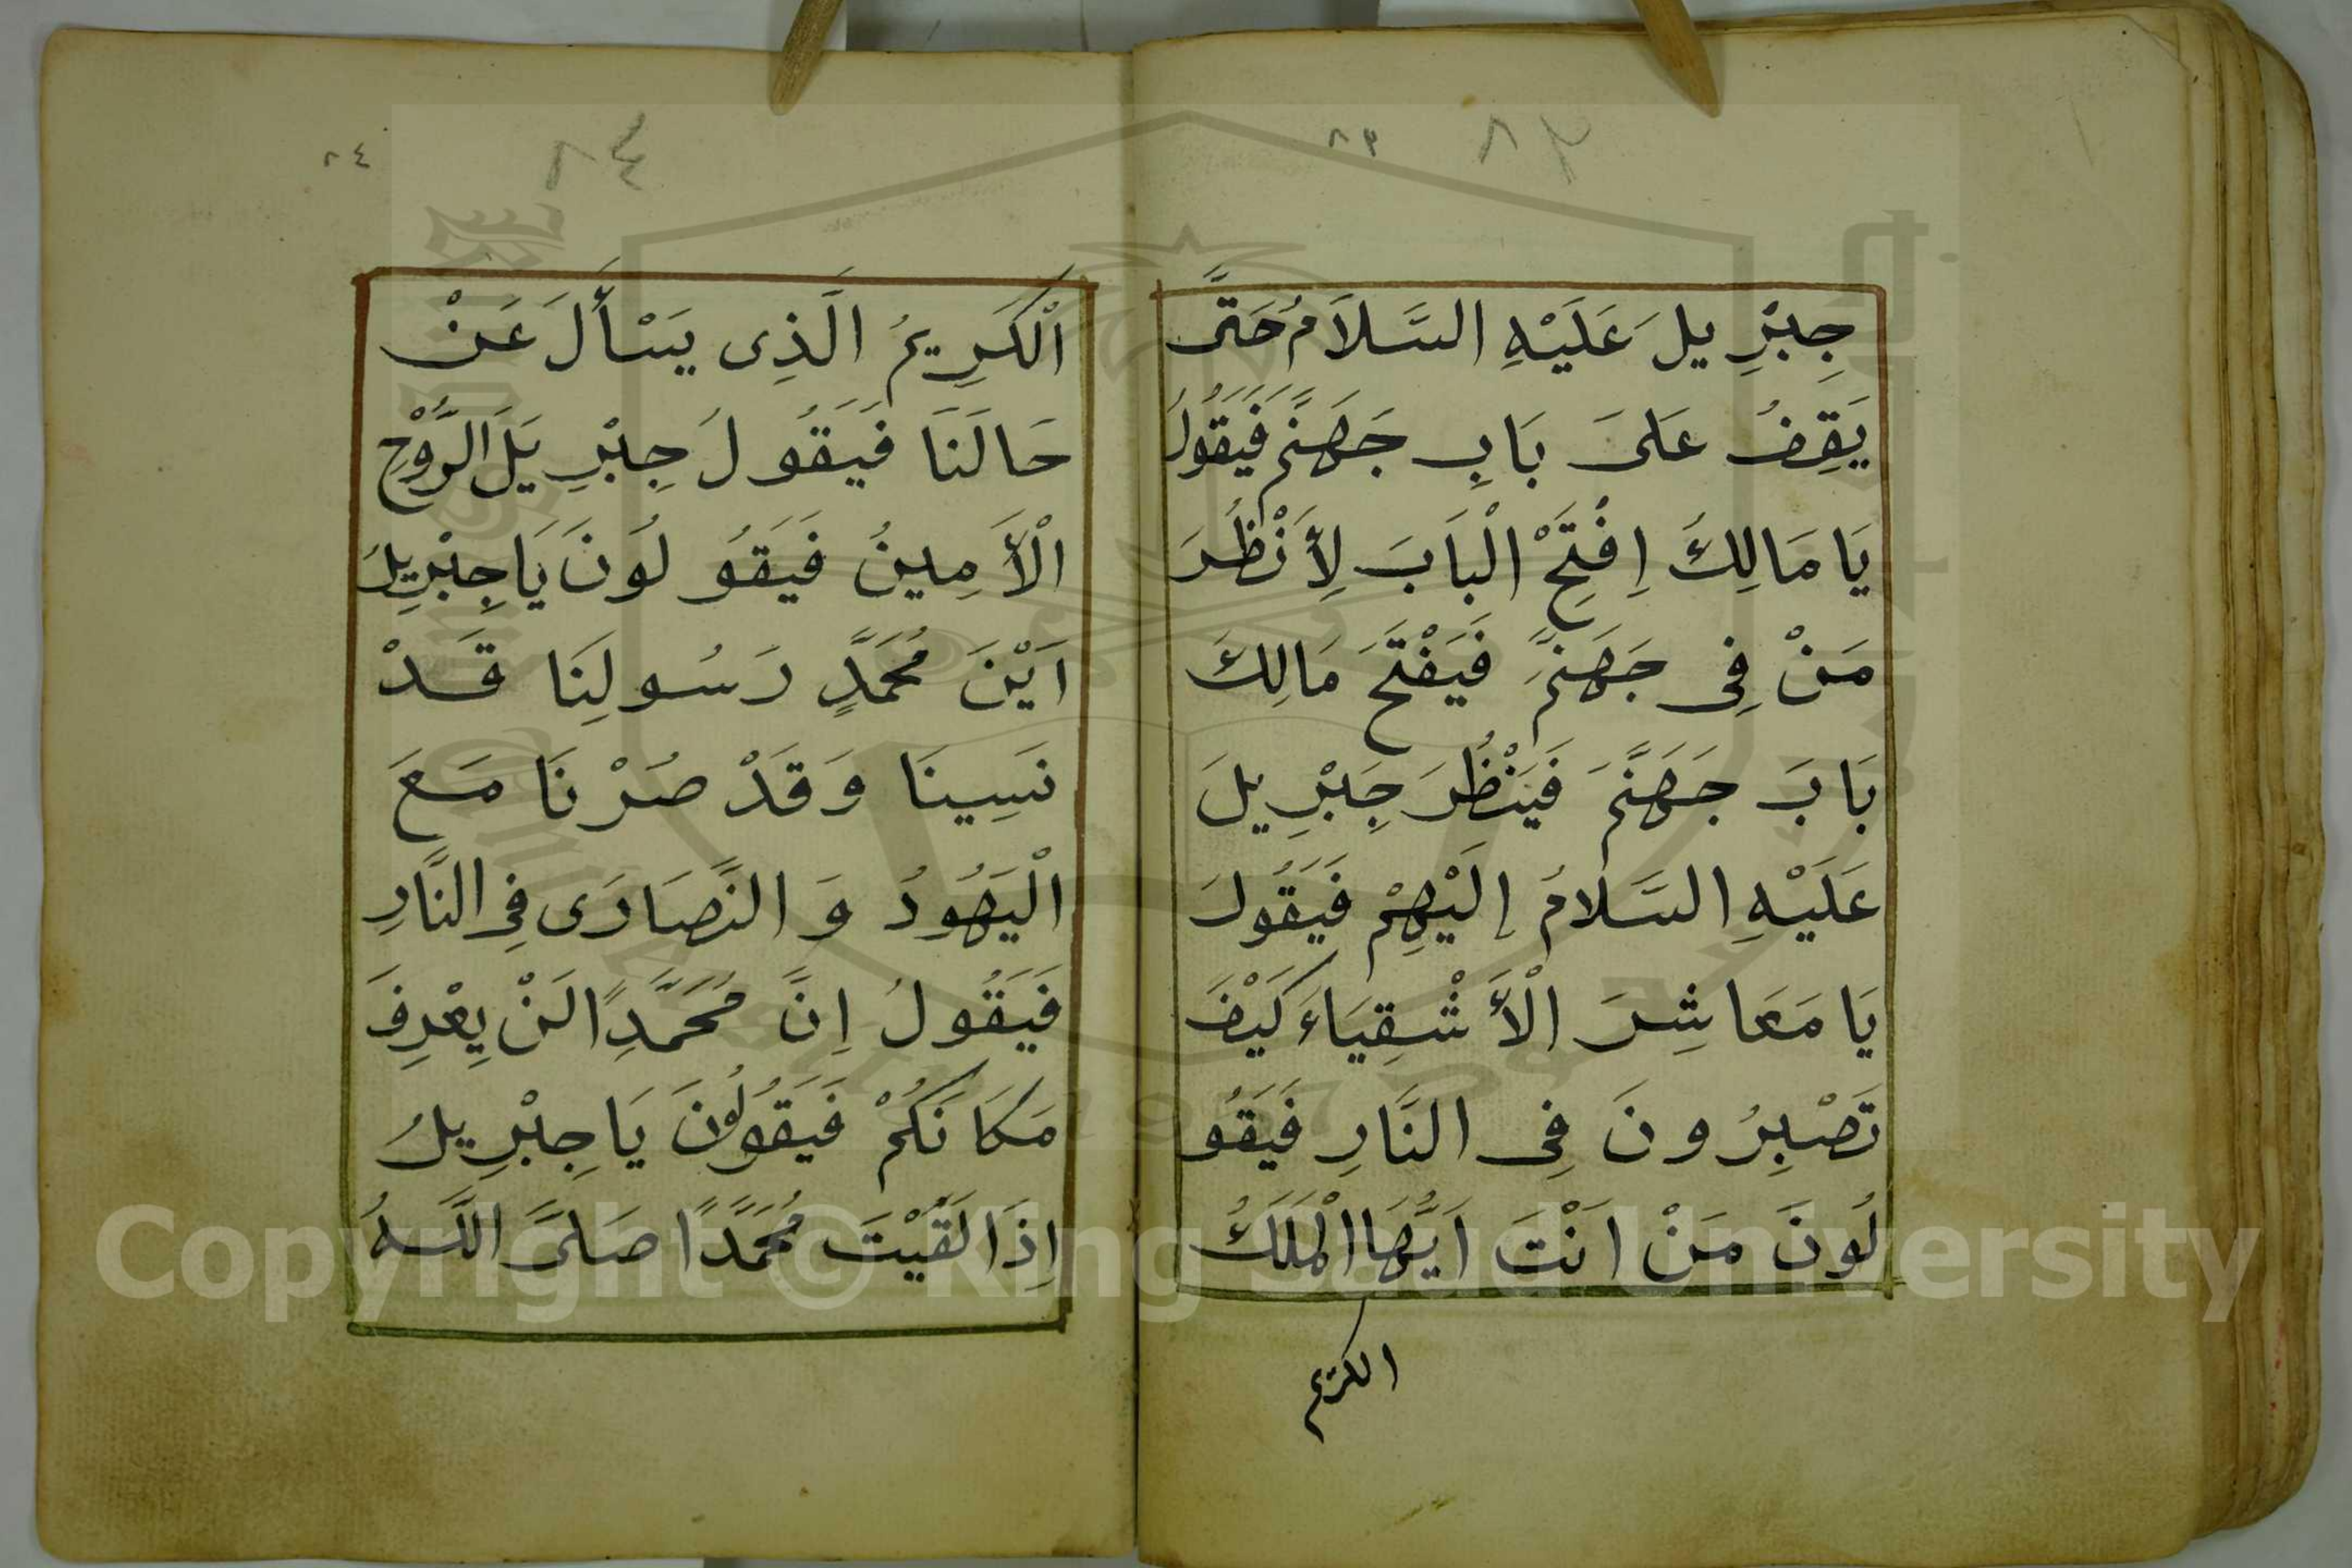 ٨٣ ٨٣
جِبْرِيلَ عَلَيْهِ السَّلَامُ حَتَّى
يَقِفُ عَلَى بَابِ جَهَنَّمَ فَيَقُولُ
يَا مَالِكُ اِفْتَحْ الْبَابَ لِأَنْظُرَ
مَنْ فِى جَهَنَّمَ فَيَفْتَحَ مَالِكَ
بَابَ جَهَنَّمَ فَيَنْظُرَ جِبْرِيلَ
عَلَيْهِ السَّلَامُ إِلَيْهِمْ فَيَقُولَ
يَا مَعَاشِرَ الْأَشْقِيَاءَ كَيْفَ
تَصْبِرُونَ فِى النَّارِ فَيَقُو
لُونَ مَنْ اَنْتَ اَيُّهَا الْمَلَكُ
الكريم
٨٤ ٨٤
اَلْكَرِيمُ الَّذِى يَسْأَلَ عَنْ
حَالَنَا فَيَقُولَ جِبْرِيَلَ الرُّوْحِ
الْأَمِينُ فَيَقُولُونَ يَا جِبْرِيلُ
اَيْنَ مُحَمَّدٍ رَسُولِنَا قَدْ
نَسِينَا وَقَدْ صُرْنَا مَعَ
الْيَهُودُ وَ النَّصَارَى فِى النَّارِ
فَيَقُولُ اِنَّ مُحَمَّدِاً لَنْ يِعْرِفَ
مَكَانَكُمْ فَيَقُولُونَ يَا جِبْرِيلُ
اِذَا لَقَيْتَ مُحَمَّدًا صَلَّى اللَّهُ
Copyright © King Saud University
1957